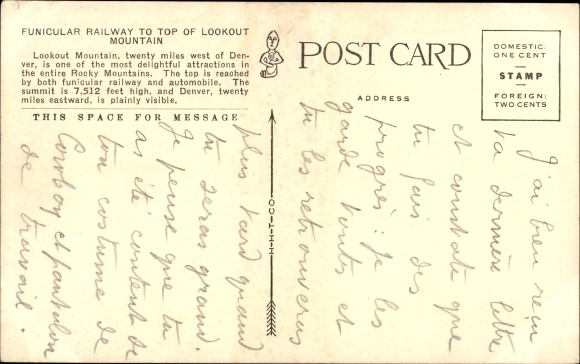 FUNICULAR RAILWAY TO TOP OF LOOKOUT
MOUNTAIN
Lookout Mountain, twenty miles west of Den-
ver, is one of the most delightful attractions in
the entire Rocky Mountains. The top is reached
by both funicular railway and automobile. The
summit is 7,512 feet high, and Denver, twenty
miles eastward, is plainly visible.
THIS SPACE FOR MESSAGE
POST CARD
ADDRESS
DOMESTIC:
ONE CENT
STAMP
FOREIGN:
TWO CENTS
H-H-T-CO
J'ai bien reçu
ta dernière lettre
et constate que
tu fais des
progrès : je les
garde toutes et
tu les retrouveras
plus tard quand
tu seras grand.
Je pense que tu
as été content de
ton costume de
Cowboy et pantalon
de travail.